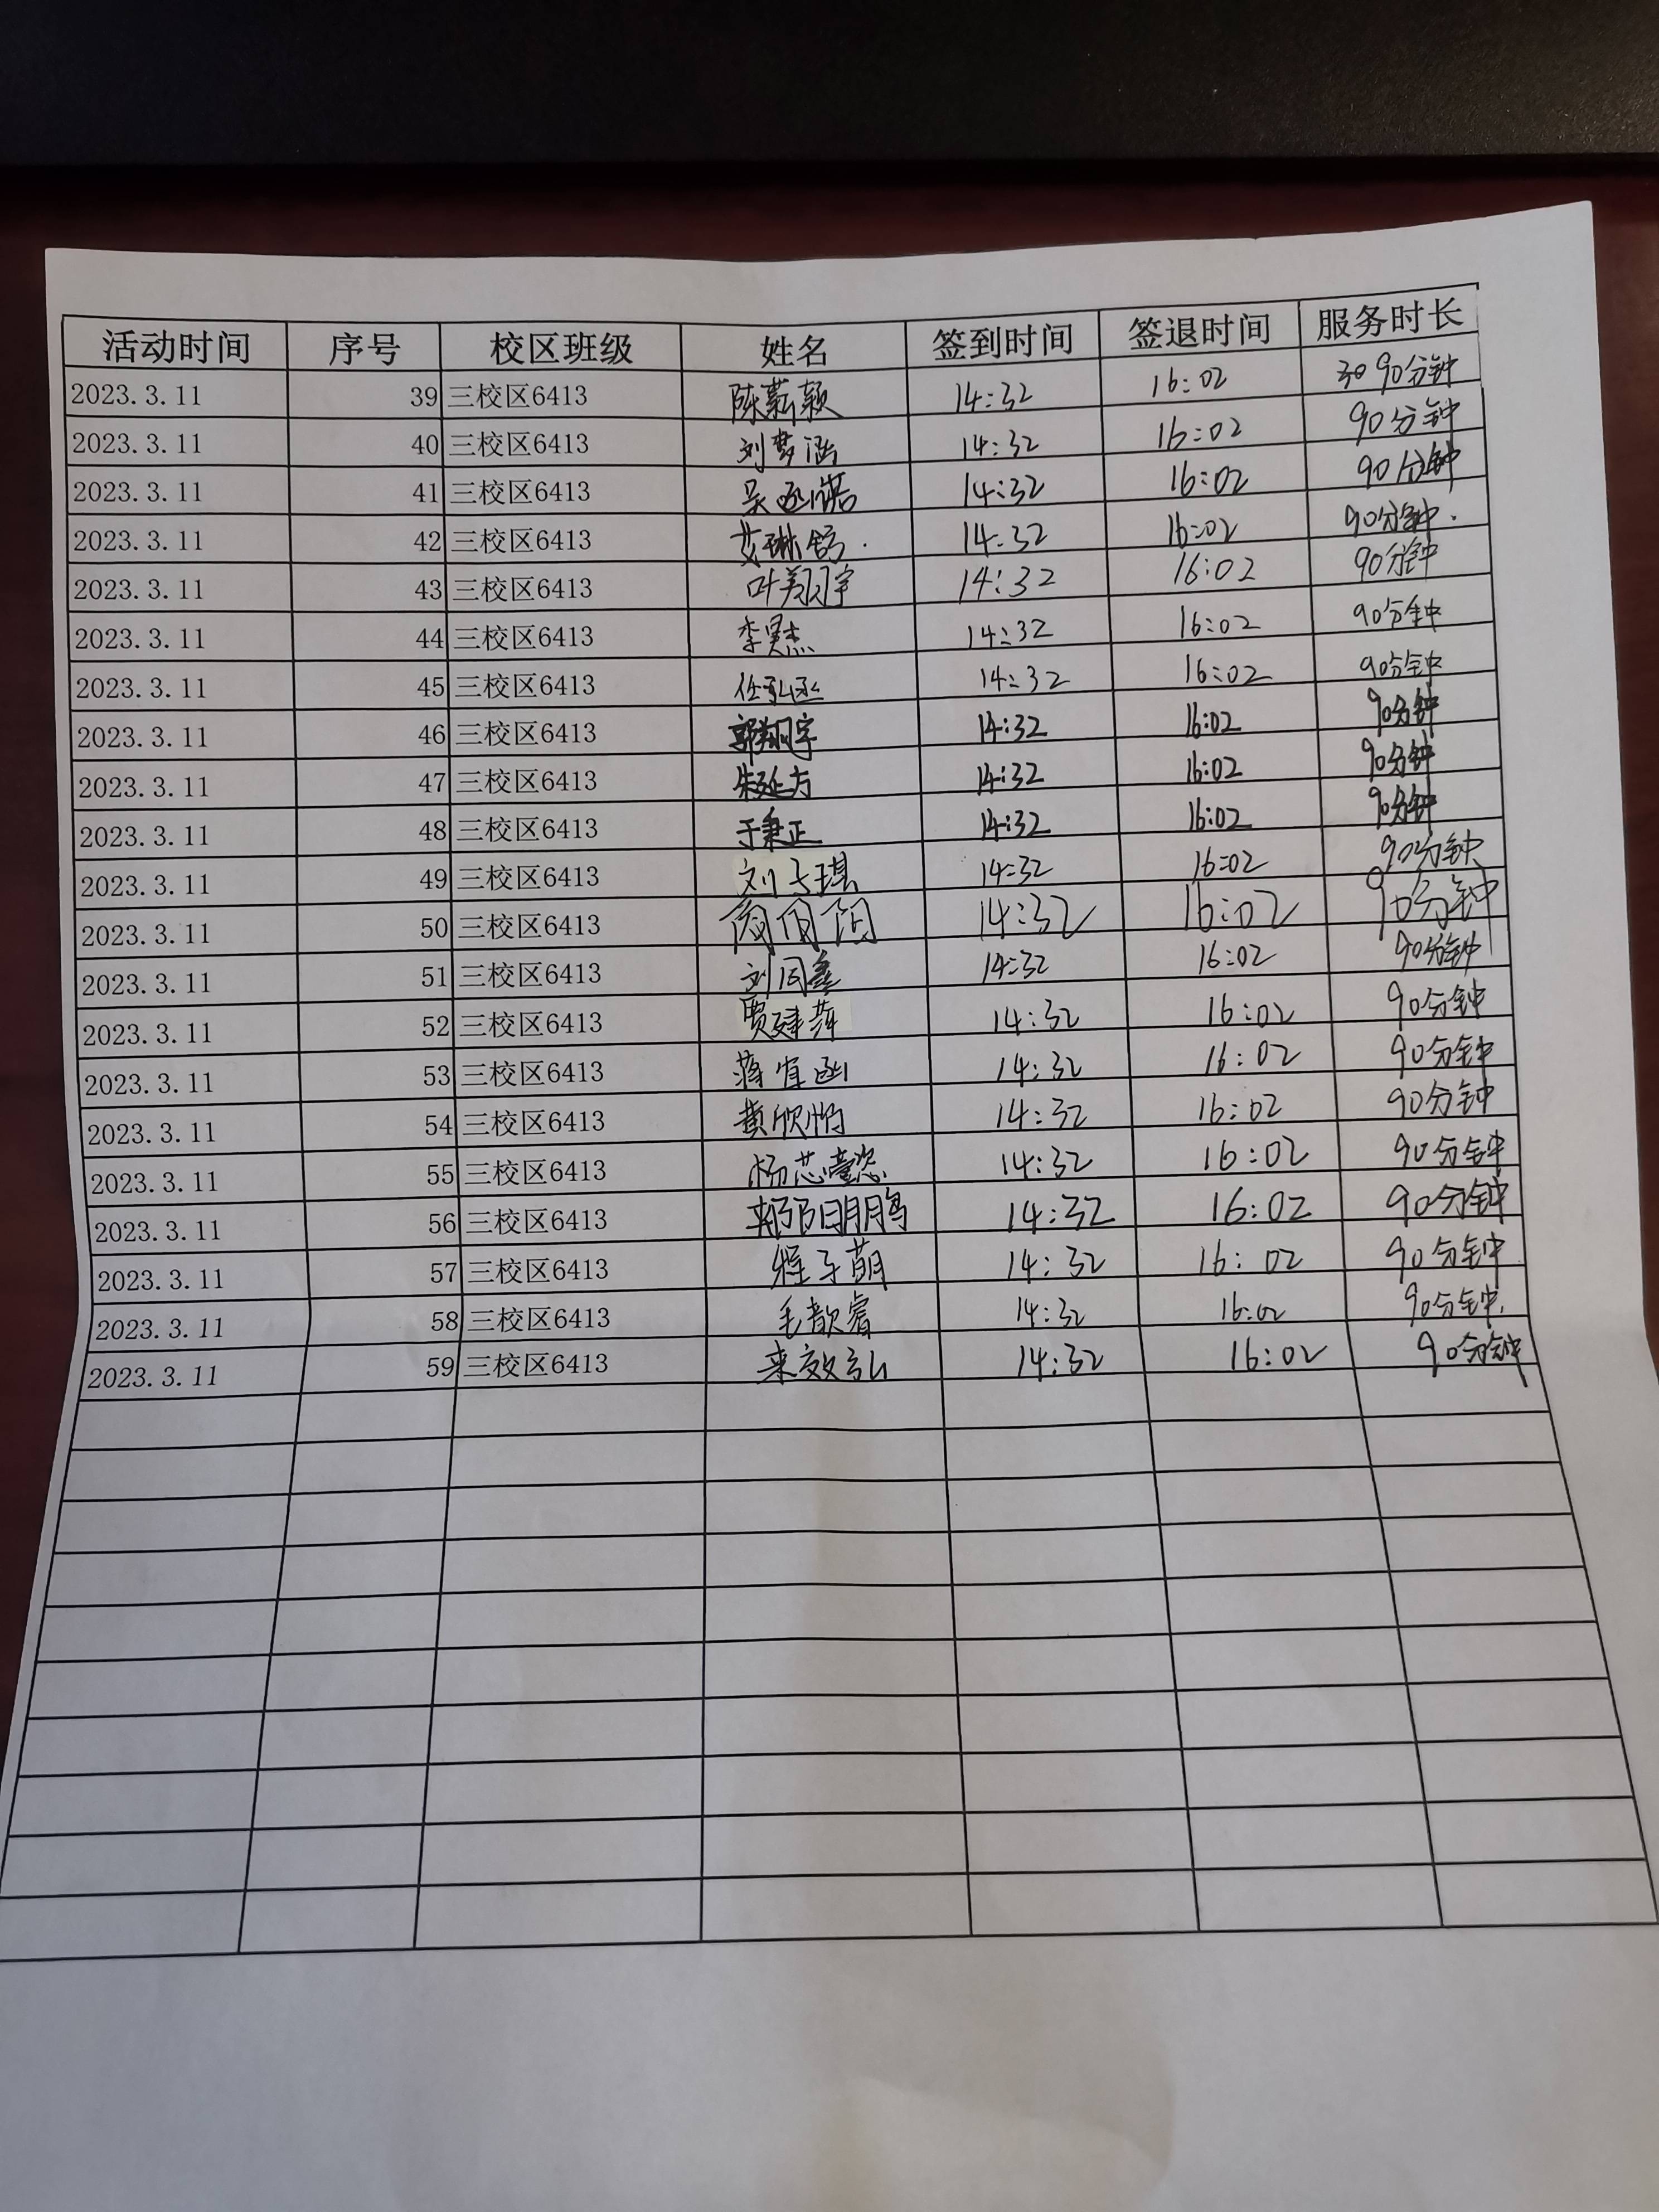 活动时间 序号 校区班级 姓名 签到时间 签退时间 服务时长
2023.3.11 39 三校区6413 陈薪颖 14:32 16:02 90分钟
2023.3.11 40 三校区6413 刘梦涵 14:32 16:02 90分钟
2023.3.11 41 三校区6413 吴函诺 14:32 16:02 90分钟
2023.3.11 42 三校区6413 艾琳舒 14:32 16:02 90分钟
2023.3.11 43 三校区6413 叶翔宇 14:32 16:02 90分钟
2023.3.11 44 三校区6413 李昊杰 14:32 16:02 90分钟
2023.3.11 45 三校区6413 任弘丞 14:32 16:02 90分钟
2023.3.11 46 三校区6413 郭翔宇 14:32 16:02 90分钟
2023.3.11 47 三校区6413 朱延方 14:32 16:02 90分钟
2023.3.11 48 三校区6413 于秉正 14:32 16:02 90分钟
2023.3.11 49 三校区6413 刘子琪 14:32 16:02 90分钟
2023.3.11 50 三校区6413 14:32 16:02 90分钟
2023.3.11 51 三校区6413 刘同鑫 14:32 16:02 90分钟
2023.3.11 52 三校区6413 贾建萍 14:32 16:02 90分钟
2023.3.11 53 三校区6413 蒋宜函 14:32 16:02 90分钟
2023.3.11 54 三校区6413 黄欣怡 14:32 16:02 90分钟
2023.3.11 55 三校区6413 杨芯懿 14:32 16:02 90分钟
2023.3.11 56 三校区6413 14:32 16:02 90分钟
2023.3.11 57 三校区6413 程子萌 14:32 16:02 90分钟
2023.3.11 58 三校区6413 毛歆睿 14:32 16:02 90分钟
2023.3.11 59 三校区6413 来效弘 14:32 16:02 90分钟